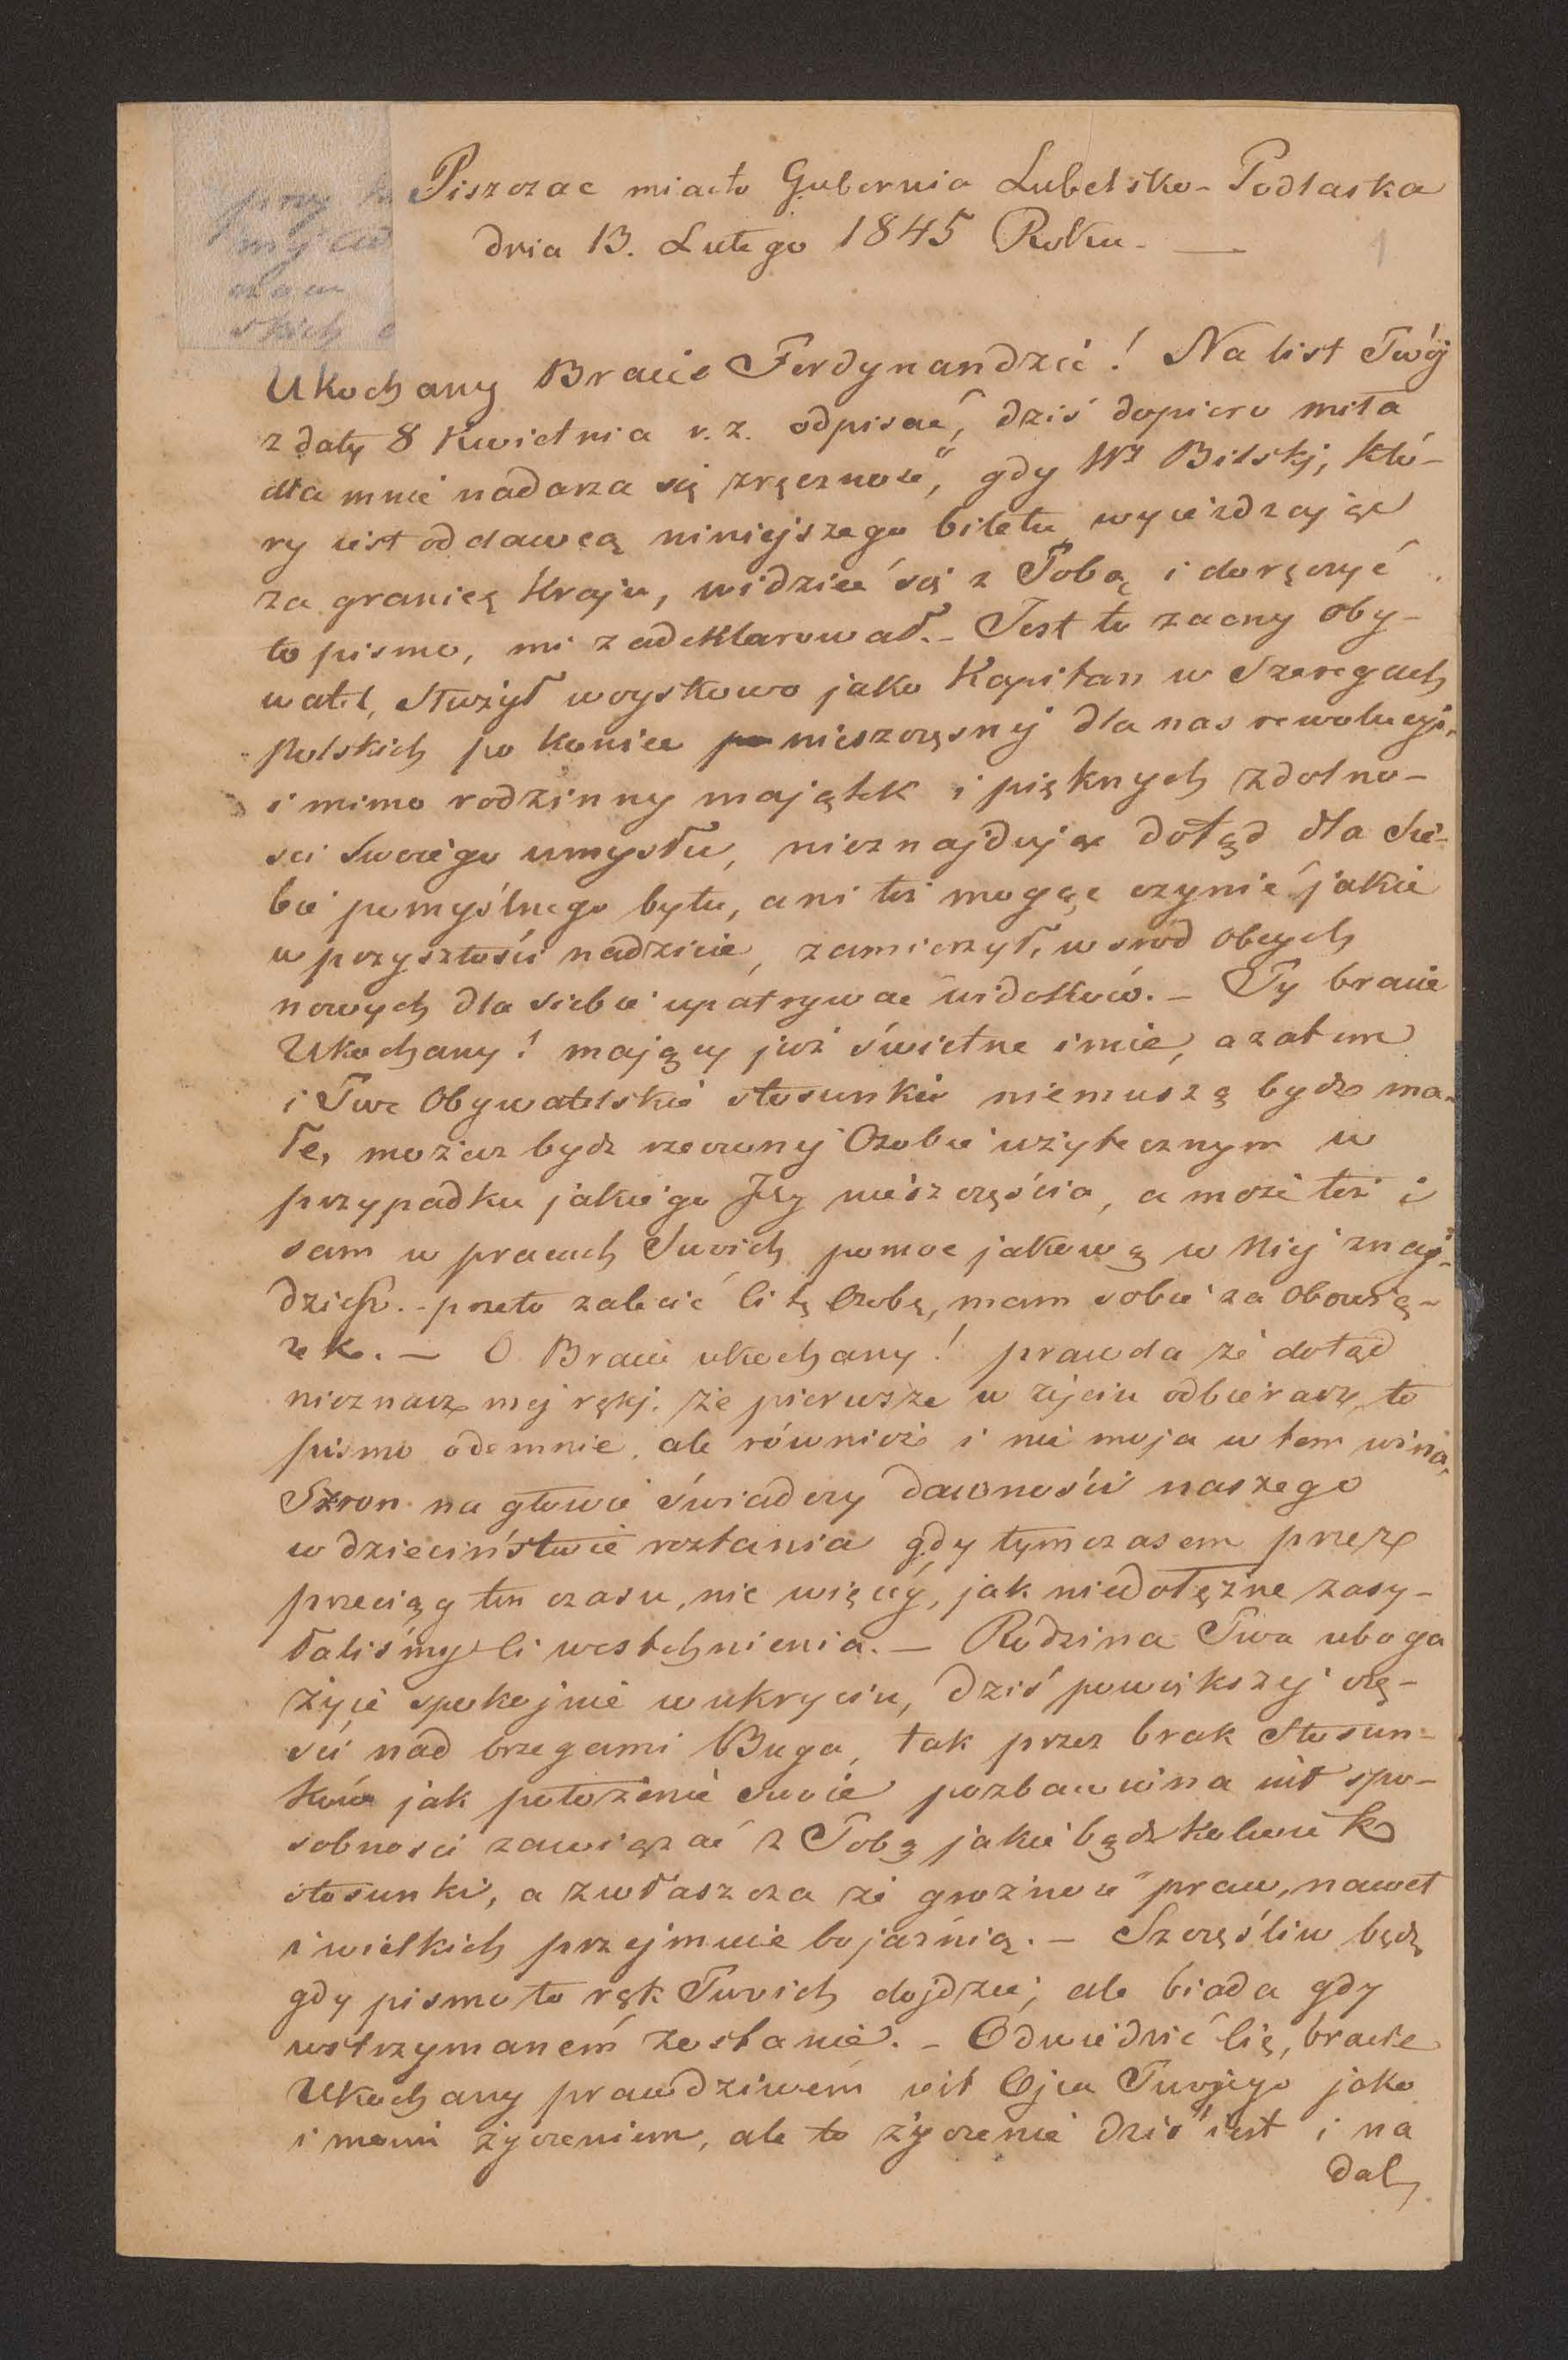 Piszczac miasto Gubernia Lubelsko-Podlaska
dnia 13. Lutego 1845 Roku. —
1
przy
mej
skich
Ukochany Bracie Ferdynandzie! Na list Twój
z daty 8 Kwietnia r.z. odpisać, dziś dopiero miła
dla mnie nadarza się zręczność, gdy Wy Bilskj, któ-
ry iest oddawcą niniejszego biletu wyieżdzając
za granicę Kraju, widzieć się z Tobą i doręczyć
to pismo, mi zadeklarował. - Jest to zacny oby-
watel, służył woyskowo jako Kapitan w Szeregach
Polskich po koniec nieszczęsnej dla nas rewolucyi,
i mimo rodzinny majątek i pięknych zdolno-
sci swoiego umysłu, nieznajdując dotąd dla sie-
bie pomyślnego bytu, ani też mogąc czynić jakie
w przyszłości nadzieie, zamierzył, wsrod obcych
nowych dla siebie upatrywać widoków. - Ty bracie
Ukochany! mający już świetne imie, a zatem
i Twe Obywatelskie stosunki niemuszą bydź ma-
łe, możesz bydź rzeczonej Osobie użytecznym w
przypadku jakiego Jey nieszczęścia, a może też i
sam w pracach Swoich pomoc jakową w Niej znaj-
dziesz. - przeto zalecić Ci tę Osobę, mam sobie za obowią-
zek. — O Bracie ukochany! prawda że dotąd
nieznasz mej ręki. że pierwsze w życiu odbierasz to
pismo odemnie, ale również i nie moja w tem wina,
Szron na głowie świadczy dawność naszego
w dzieciństwie roztania gdy tymczasem przez
przeciąg ten czasu, nic więcéj, jak niedołężne zasy-
łaliśmy Ci westchnienia. — Rodzina Twa uboga
żyje spokojnie w ukryciu, dziś powiększej czę-
ści nad brzegami Buga, tak przez brak Stosun-
ków jak położenie swoie pozbawiona iest spo-
sobnosci zawiązać z Tobą jakie bądź kolwiek
stosunki, a zwłaszcza że groźność praw, nawet
i wielkich przejmuie bojaźnią. — Szczęśliw będę
gdy pismo to rąk Twoich dojdzie; ale biada gdy
wstrzymaném zostanie. - Odwiedzić Cię, bracie
Ukochany prawdziwém iest Ojca Twojego jako
i moim życzeniem, ale to życzenie dziś iest i na
dal